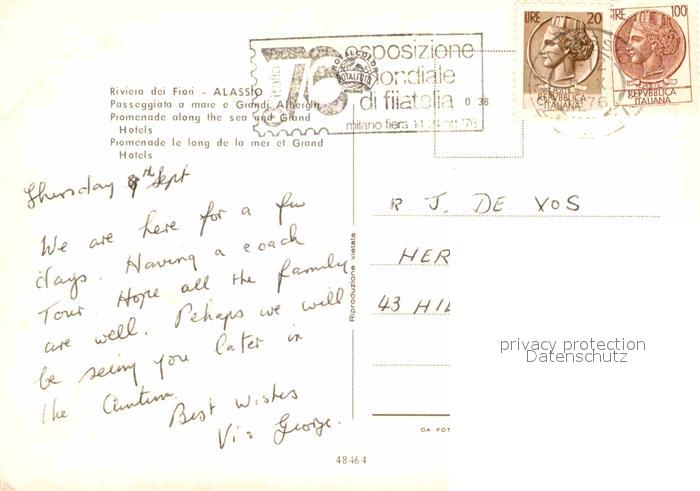 Riviera dei Fiori - ALASSIO
Passeggiata a mare e Grandi Alberghi
Promenade along the sea and Grand
Hotels
Promenade le long de la mer et Grand
Hotels
italia 76
esposizione
mondiale
di filatelia
milano fiera 14-24 ott. '76
ROTALCOLOR
ROTALFOTO
MILANO
0 38
LIRE 20
REPVBBLICA
ITALIANA
LIRE 100
REPVBBLICA
ITALIANA
76
Thursday 9th Sept
We are here for a few
days. Having a coach
Tour. Hope all the family
are well. Pehaps we will
be seeing you later in
the Autumn.
Best wishes
Vi & George.
Riproduzione vietata
R J. DE VOS
HER
43 HIL
privacy protection
Datenschutz
DA FOT
48464